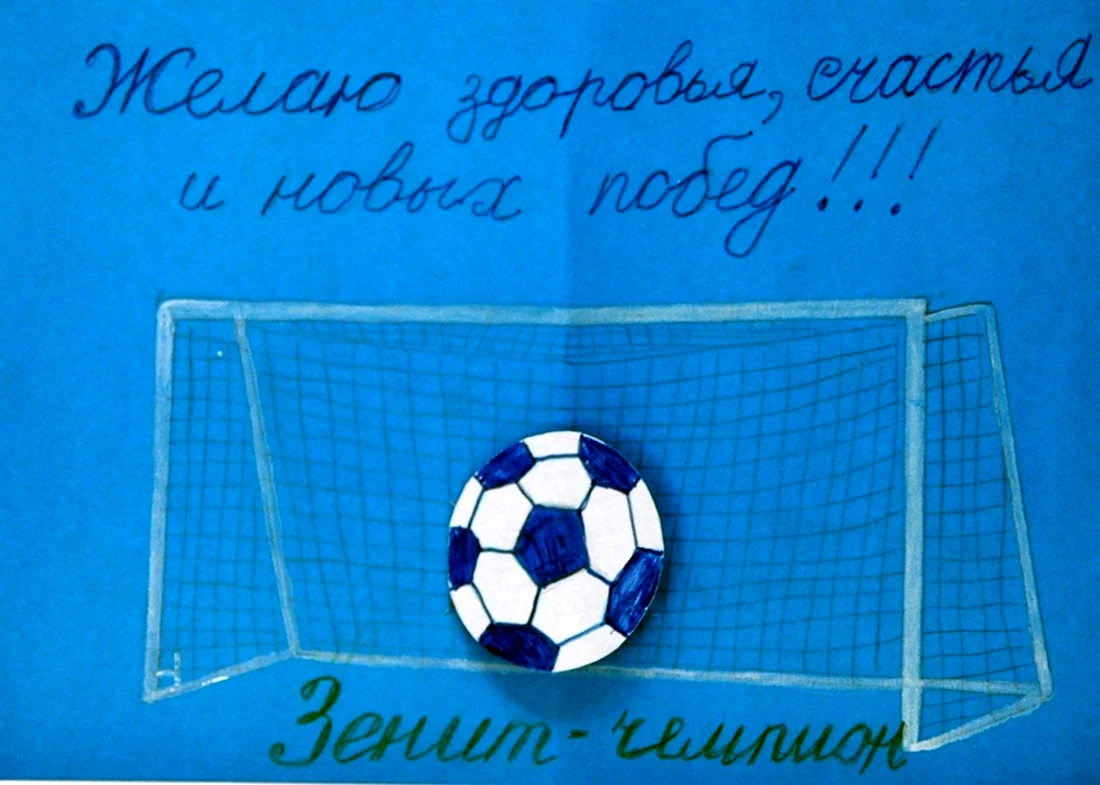 Желаю здоровья, счастья
и новых побед!!!
Зенит-чемпион